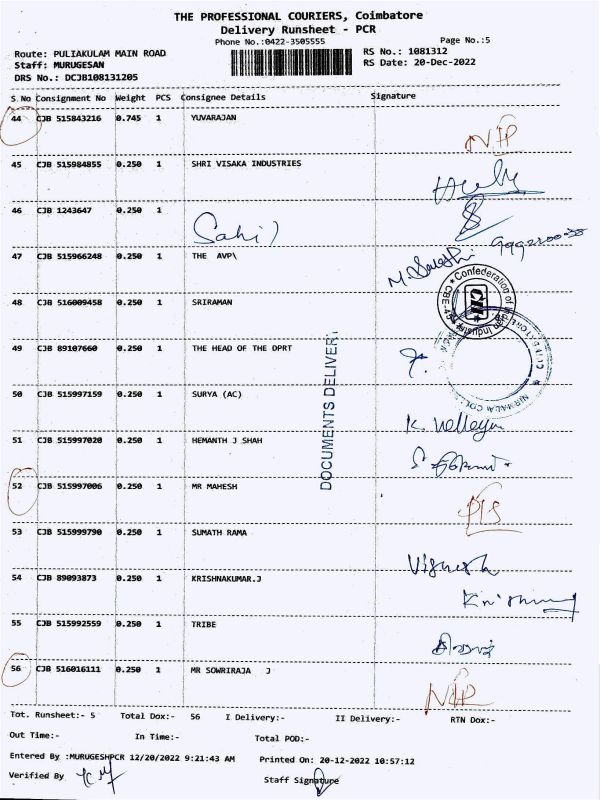 THE PROFESSIONAL COURIERS, Coimbatore
Delivery Runsheet - PCR
Phone No.:0422-3505555
Page No.:5
Route: PULIAKULAM MAIN ROAD
RS No.: 1081312
Staff: MURUGESAN
RS Date: 20-Dec-2022
DRS No.: DCJB108131205
S.No Consignment No Weight PCS Consignee Details Signature
44 CJB 515843216 0.745 1 YUVARAJAN
45 CJB 515984855 0.250 1 SHRI VISAKA INDUSTRIES
46 CJB 1243647 0.250 1
Sahil
47 CJB 515966248 0.250 1 THE AVP\
48 CJB 516009458 0.250 1 SRIRAMAN
Confederation of Indian Industry
CII
49 CJB 89107660 0.250 1 THE HEAD OF THE DPRT
DOCUMENTS DELIVERY
50 CJB 515997159 0.250 1 SURYA (AC)
51 CJB 515997020 0.250 1 HEMANTH J SHAH
52 CJB 515997006 0.250 1 MR MAHESH
53 CJB 515999790 0.250 1 SUMATH RAMA
Vignesh
54 CJB 89093873 0.250 1 KRISHNAKUMAR.J
55 CJB 515992559 0.250 1 TRIBE
56 CJB 516016111 0.250 1 MR SOWRIRAJA J
Tot. Runsheet:- 5 Total Dox:- 56 I Delivery:- II Delivery:- RTN Dox:-
Out Time:- In Time:- Total POD:-
Entered By :MURUGESHPCR 12/20/2022 9:21:43 AM Printed On: 20-12-2022 10:57:12
Verified By Staff Signature